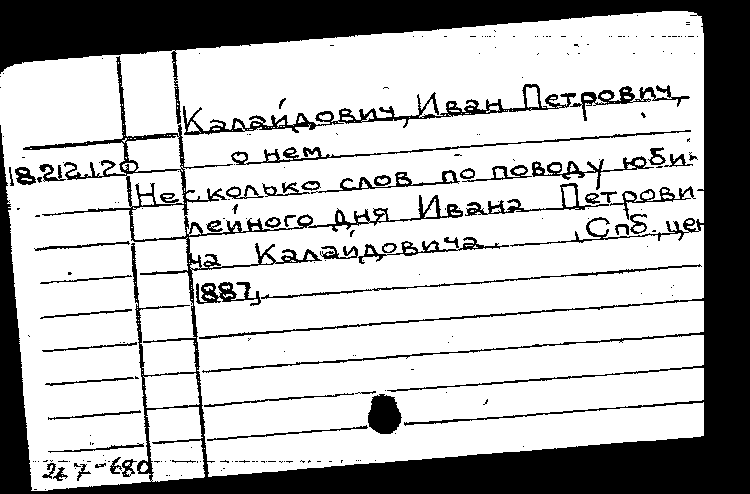 Калайдович, Иван Петрович,
о нем.
18.212.120
Несколько слов по поводу юби-
лейного дня Ивана Петрови-
ча Калайдовича. Спб., цен
1887,
267-680